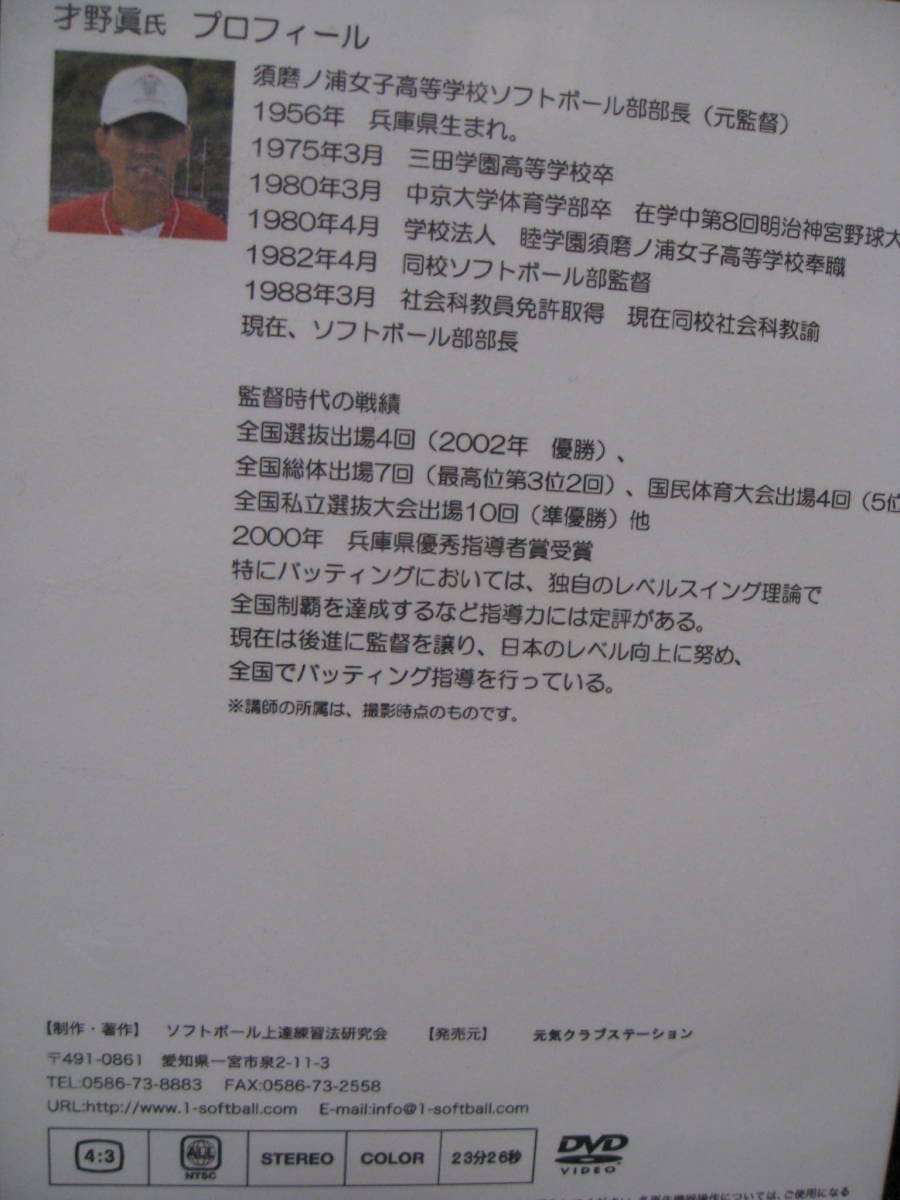 才野眞氏　プロフィール
須磨ノ浦女子高等学校ソフトボール部部長（元監督）
1956年　兵庫県生まれ。
1975年3月　三田学園高等学校卒
1980年3月　中京大学体育学部卒　在学中第8回明治神宮野球大
1980年4月　学校法人　睦学園須磨ノ浦女子高等学校奉職
1982年4月　同校ソフトボール部監督
1988年3月　社会科教員免許取得　現在同校社会科教諭
現在、ソフトボール部部長
監督時代の戦績
全国選抜出場4回（2002年　優勝）、
全国総体出場7回（最高位第3位2回）、国民体育大会出場4回（5位
全国私立選抜大会出場10回（準優勝）他
2000年　兵庫県優秀指導者賞受賞
特にバッティングにおいては、独自のレベルスイング理論で
全国制覇を達成するなど指導力には定評がある。
現在は後進に監督を譲り、日本のレベル向上に努め、
全国でバッティング指導を行っている。
※講師の所属は、撮影時点のものです。
【制作・著作】　ソフトボール上達練習法研究会　【発売元】　元気クラブステーション
〒491-0861　愛知県一宮市泉2-11-3
TEL:0586-73-8883　FAX:0586-73-2558
URL:http://www.1-softball.com　E-mail:info@1-softball.com
4:3　ALL NTSC　STEREO　COLOR　23分26秒　DVD VIDEO
ご使用になる